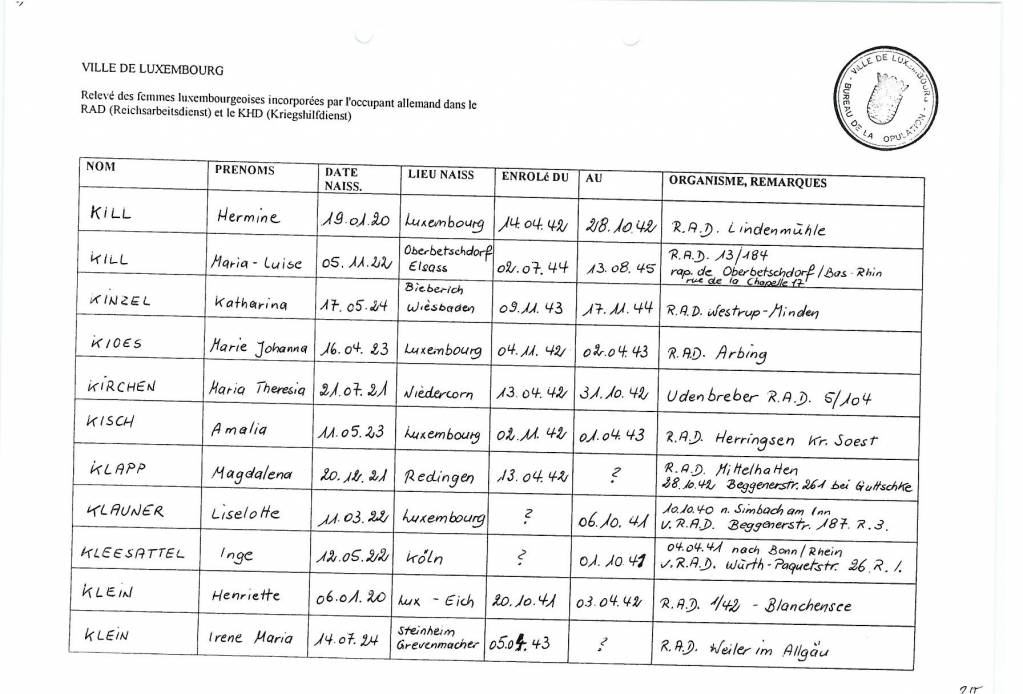 VILLE DE LUXEMBOURG
Relevé des femmes luxembourgeoises incorporées par l'occupant allemand dans le
RAD (Reichsarbeitsdienst) et le KHD (Kriegshilfdienst)
VILLE DE LUXEMBOURG - BUREAU DE LA OPULATION -
NOM PRENOMS DATE NAISS. LIEU NAISS ENROLé DU AU ORGANISME, REMARQUES
KILL Hermine 19.01.20 Luxembourg 14.04.42 28.10.42 R.A.D. Lindenmühle
KILL Maria-Luise 05.11.22 Oberbetschdorf Elsass 02.07.44 13.08.45 R.A.D. 13/184
rap. de Oberbetschdorf/Bas-Rhin
rue de la Chapelle 17
KINZEL Katharina 17.05.24 Bieberich Wiesbaden 09.11.43 17.11.44 R.A.D. Westrup-Minden
KIOES Marie Johanna 16.04.23 Luxembourg 04.11.42 02.04.43 R.A.D. Arbing
KIRCHEN Maria Theresia 21.07.21 Niedercorn 13.04.42 31.10.42 Udenbreber R.A.D. 5/104
KISCH Amalia 11.05.23 Luxembourg 02.11.42 01.04.43 R.A.D. Herringsen Kr. Soest
KLAPP Magdalena 20.12.21 Redingen 13.04.42 ? R.A.D. Mittelhatten
28.10.42 Beggenerstr. 261 bei Guttschke
KLAUNER Liselotte 11.03.22 Luxembourg ? 06.10.41 10.10.40 n. Simbach am Inn
v.R.A.D. Beggenerstr. 187. R.3.
KLEESATTEL Inge 12.05.22 Köln ? 01.10.41 04.04.41 nach Bonn/Rhein
v.R.A.D. Würth-Paquetstr. 26 R.1.
KLEIN Henriette 06.01.20 Lux - Eich 20.10.41 03.04.42 R.A.D. 1/42 - Blanchensee
KLEIN Irene Maria 14.07.24 Steinheim Grevenmacher 05.04.43 ? R.A.D. Weiler im Allgäu